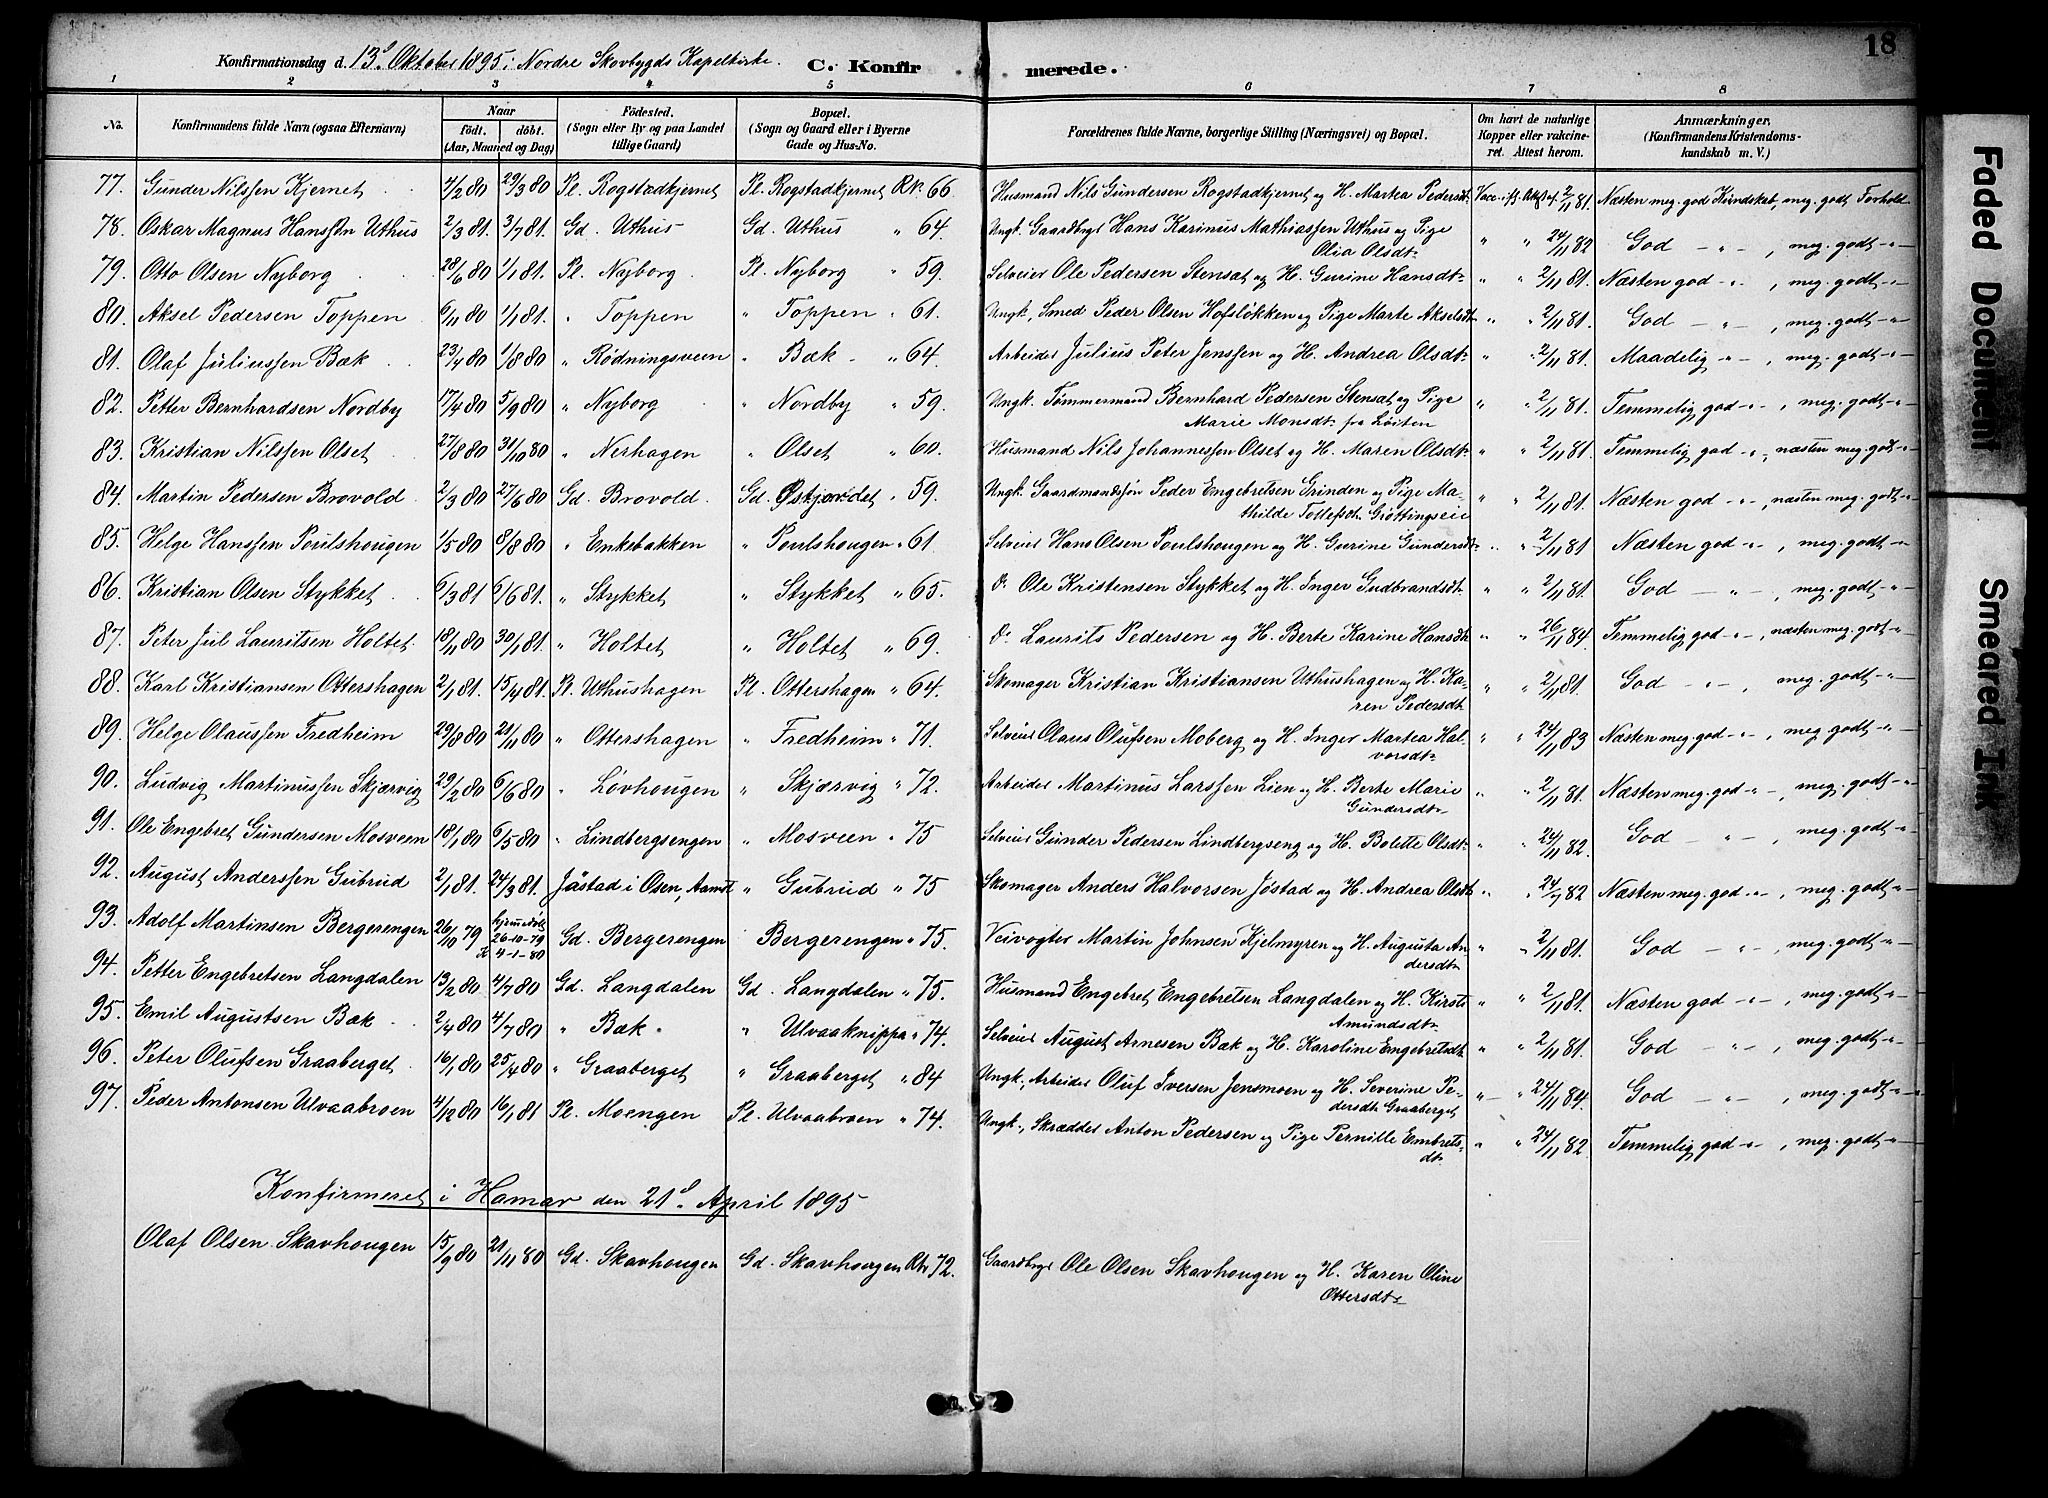 18
Konfirmationsdag d. 13de Oktober 1895 i Nordre Skovbygds Kapelkirke. C. Konfirmerede.
1 2 3 4 5 6 7 8
No. Konfirmandens fulde Navn (ogsaa Efternavn) Naar födt. döbt. (Aar, Maaned og Dag) Födested. (Sogn eller By og paa Landet tillige Gaard) Bopæl. (Sogn og Gaard eller i Byerne Gade og Hus-No. Forældrenes fulde Navne, borgerlige Stilling (Næringsvei) og Bopæl. Om havt de naturlige Kopper eller vakcineret. Attest herom. Anmærkninger. (Konfirmandens Kristendomskundskab m. V.)
77. Gunder Nilssen Kjernet 4/2 80 29/3 80 Pl. Rogstadkjernet Pl. Rogstadkjernet Rk. 66. Husmand Nils Gundersen Rogstadkjernet og H. Martea Pedersdt. Vacc. 2/11 81. Næsten meg. god Kundskab, meg. godt Forhold
78. Oskar Magnus Hanssen Uthus 2/3 81. 3/7 81. Gd. Uthus Gd. Uthus " 64. Ungk. Gaardbrgr Hans Karinus Mathiassen Uthus og Pige Olia Olsdt. " " 24/11 82 God — " — , meg. godt — " —
79. Otto Olsen Nyborg 28/6 80 1/1 81. Pl. Nyborg Pl. Nyborg " 59. Selveier Ole Pedersen Stensæt og H. Gurine Hansdt. " " 2/11 81. Næsten god — " — , meg. godt — " —
80. Aksel Pedersen Toppen 6/11 80 1/1 81. " Toppen " Toppen " 61. Ungk., Smed Peder Olsen Hofsløkken og Pige Marte Akselsdt. " " 2/11 81. God — " — , meg. godt — " —
81. Olaf Juliussen Bæk 23/4 80 1/8 80 " Rødningsveen " Bæk " 64. Arbeider Julius Peter Jenssen og H. Andrea Olsdt. " " 2/11 81. Maadelig — " — , meg. godt — " —
82. Petter Bernhardsen Nordby 17/4 80 5/9 80 " Nyborg " Nordby " 59. Ungk. Tømmermand Bernhard Pedersen Stensæt og Pige Marie Monsdt. fra Løiten " " 2/11 81. Temmelig god — " — , meg. godt — " —
83. Kristian Nilssen Olset 27/8 80 31/10 80 " Nerhagen " Olset " 60. Husmand Nils Johannessen Olset og H. Maren Olsdt. " " 2/11 81. Temmelig god — " — , næsten meg. godt — " —
84. Martin Pedersen Brovold 2/3 80 27/6 80 Gd. Brovold Gd. Østjordet " 59. Ungk. Gaardmandssøn Peder Engebretsen Grinden og Pige Mathilde Tollefsdt. Grøttingseie " " 2/11 81. Næsten god — " — , næsten meg. godt — " —
85. Helge Hanssen Poulshougen 1/5 80 8/8 80 " Enkebakken " Poulshougen " 61. Selveier Hans Olsen Poulshougen og H. Gurine Gundersdt. " " 2/11 81 Næsten god — " — , meg. godt — " —
86. Kristian Olsen Stykket 6/3 81 6/6 81. " Stykket " Stykket " 65. Do. Ole Kristensen Stykket og H. Inger Gudbrandsdt. " " 2/11 81. God — " — , meg. godt — " —
87. Peter Jul Lauritsen Holtet 18/11 80 30/1 81. " Holtet " Holtet " 69. Do. Laurits Pedersen og H. Berte Karine Hansdt. " " 26/11 84. Temmelig god — " — , næsten meg. godt — " —
88. Karl Kristiansen Ottershagen 2/1 81. 15/4 81. Pl. Uthushagen Pl. Ottershagen " 64. Skomager Kristian Kristiansen Uthushagen og H. Karen Pedersdt. " " 2/11 81. God — " — , meg. godt — " —
89. Helge Olaussen Fredheim 29/8 80 21/11 80 " Ottershagen " Fredheim " 71. Selveier Olaus Olufsen Moberg og H. Inger Martea Halvorsdt. " " 24/11 83 Næsten meg. god — " — , meg. godt — " —
90. Ludvig Martinussen Skjærvig 29/2 80 6/6 80 " Løvhougen " Skjærvig " 72. Arbeider Martinus Larssen Lien og H. Berte Marie Gundersdt. " " 2/11 81. Næsten meg. god — " — , meg. godt — " —
91. Ole Engebret Gundersen Mosveen 18/1 80 6/5 80 " Lindbergsengen " Mosveen " 75 Selveier Gunder Pedersen Lindbergseng og H. Bolette Olsdt. " " 24/11 82. God — " — , meg. godt — " —
92. August Anderssen Gubrud 2/1 81. 24/3 81. Jøstad i Osen, Aamot " Gubrud " 75 Skomager Anders Halvorsen Jøstad og H. Andrea Olsdt. " " 24/7 82 Næsten meg. god — " — , meg. godt — " —
93. Adolf Martinsen Bergerengen 26/10 79 hjemmedøbt 26-10-79 K 4-1-80 Gd. Bergerengen Bergerengen " 75. Veivogter Martin Johnsen Kjelmyren og H. Augusta Andersdt. " " 2/11 81. God — " — , meg. godt — " —
94. Petter Engebretsen Langdalen 13/2 80 4/7 80 Gd. Langdalen Gd. Langdalen " 75. Husmand Engebret Engebretsen Langdalen og H. Kirsti Amundsdt. " " 2/11 81. Næsten god — " — , meg. godt — " —
95. Emil Augustsen Bæk 2/4 80 4/7 80 " Bæk " Ulvaaknippa " 74. Selveier August Arnesen Bæk og H. Karoline Engebretsdt. " " 2/11 81. God — " — , meg. godt — " —
96. Peter Olufsen Graaberget 16/1 80 25/4 80 " Graaberget " Graaberget " 84 Ungk., Arbeider Oluf Iversen Jensmoen og H. Severine Pedersdt. Graaberget " " 24/11 84. God — " — , meg. godt — " —
97. Peder Antonsen Ulvaabroen 4/12 80 16/1 81 Pl. Moengen Pl. Ulvaabroen " 74. Ungk., Skrædder Anton Pedersen og Pige Pernille Embretsdt. " " 24/11 82 Temmelig god — " — , meg. godt — " —
Konfirmeret i Hamar den 21de April 1895
Olaf Olsen Skavhougen 15/9 80 21/11 80 Gd. Skavhougen Gd. Skavhougen Rk. 72. Gaardbrgr Ole Olsen Skavhougen og H. Karen Oline Ottersdt.
Faded Document
Smeared Ink